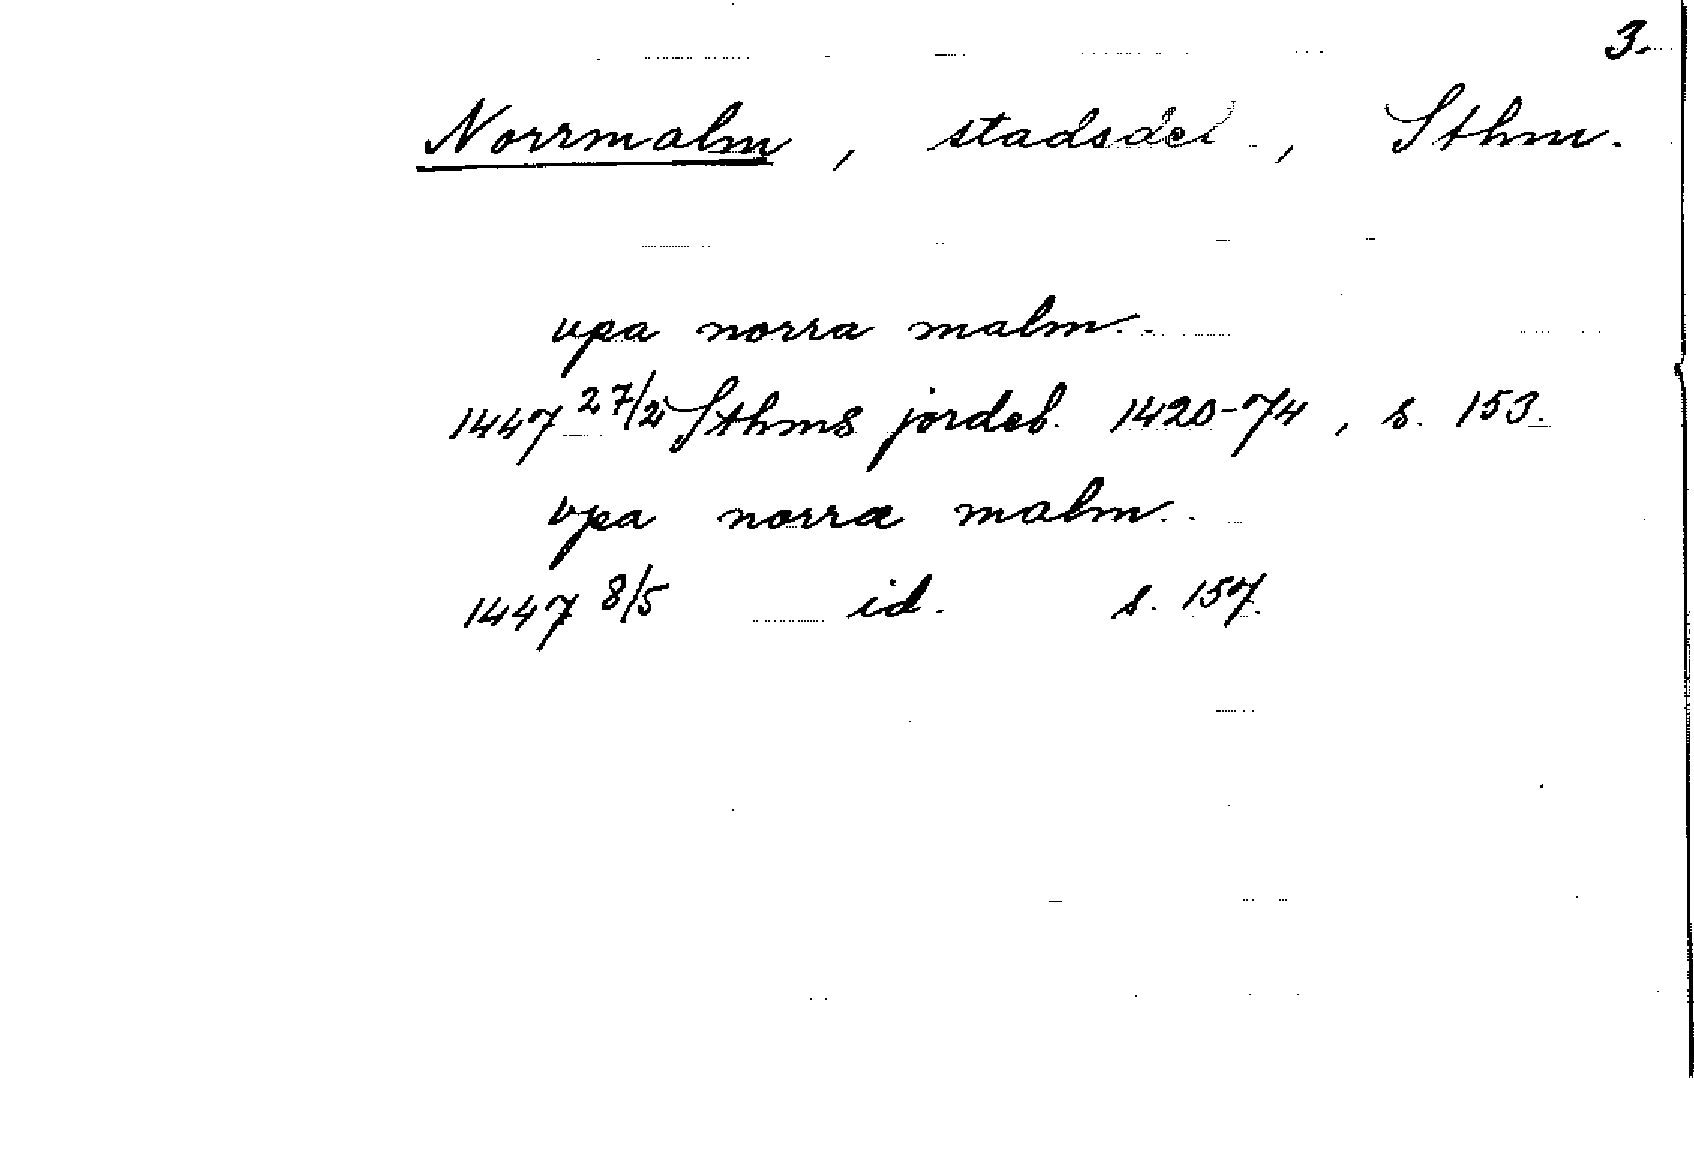 3.
Norrmalm, stadsdel, Sthm.
vpa norra malm.
1447 27/2 Sthms jordeb. 1420-74, s. 153.
vpa norra malm.
1447 8/5 id. s. 157.